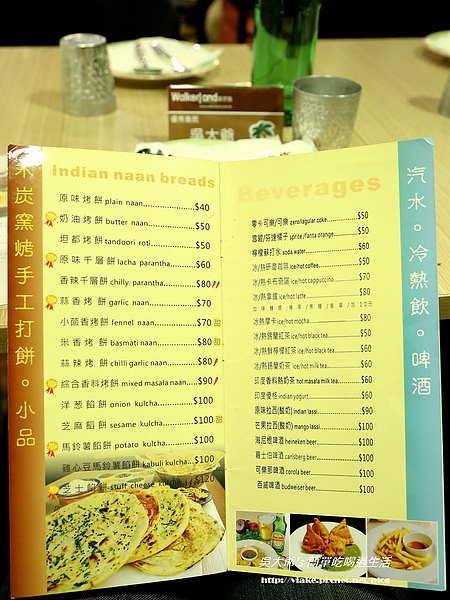 Walkerland
優秀商家
吳大爺
木炭窯烤手工打餅。小品
Indian naan breads
原味烤餅 plain naan....................$40
奶油烤餅 butter naan..................$50
坦都烤餅 tandoori roti................$50
原味千層餅 lacha parantha.........$60
香辣千層餅 chilly parantha.........$80
蒜香烤餅 garlic naan.................$70
小茴香烤餅 fennel naan............$70 甜
米香烤餅 basmati naan.............$80 甜
蒜辣烤餅 chilli garlic naan.........$80
綜合香料烤餅 mixed masala naan.....$90
洋葱餡餅 onion kulcha..............$100
芝麻餡餅 sesame kulcha............$100 甜
馬鈴薯餡餅 potato kulcha.........$100
雞心豆馬鈴薯餡餅 kabuli kulcha...$100
芝士餡餅 stuff cheese kulcha....$120
汽水。冷熱飲。啤酒
Beverages
零卡可樂/可樂 zero/lagular coke............$50
雪碧/芬達橘子 sprite/fanta orange.........$50
檸檬蘇打水 soda water.....................$60
冰/熱研磨咖啡 ice/hot coffee...............$50
冰/熱卡布奇諾 ice/hot cappuccino..........$70
冰/熱拿鐵 ice/hot latte......................$80
冰熱摩卡 ice/hot mocha.....................$80
冰/熱錫蘭紅茶 ice/hot black tea............$50
冰/熱鮮檸檬紅茶 ice/hot black tea.........$60
冰/熱錫蘭奶茶 ice/hot milk tea.............$60
印度香料熱奶茶 hot masala milk tea........$60
印度優格 indian yogurt......................$60
原味拉西(酸奶) indian lassi..................$90
芒果拉西(酸奶) mango lassi.................$100
海尼根啤酒 heineken beer...................$100
嘉士伯啤酒 carlsberg beer...................$100
可樂那啤酒 corola beer......................$100
百威啤酒 budweiser beer....................$100
吳大爺's 簡單吃喝過生活
http://viake.pixnet.net/blog